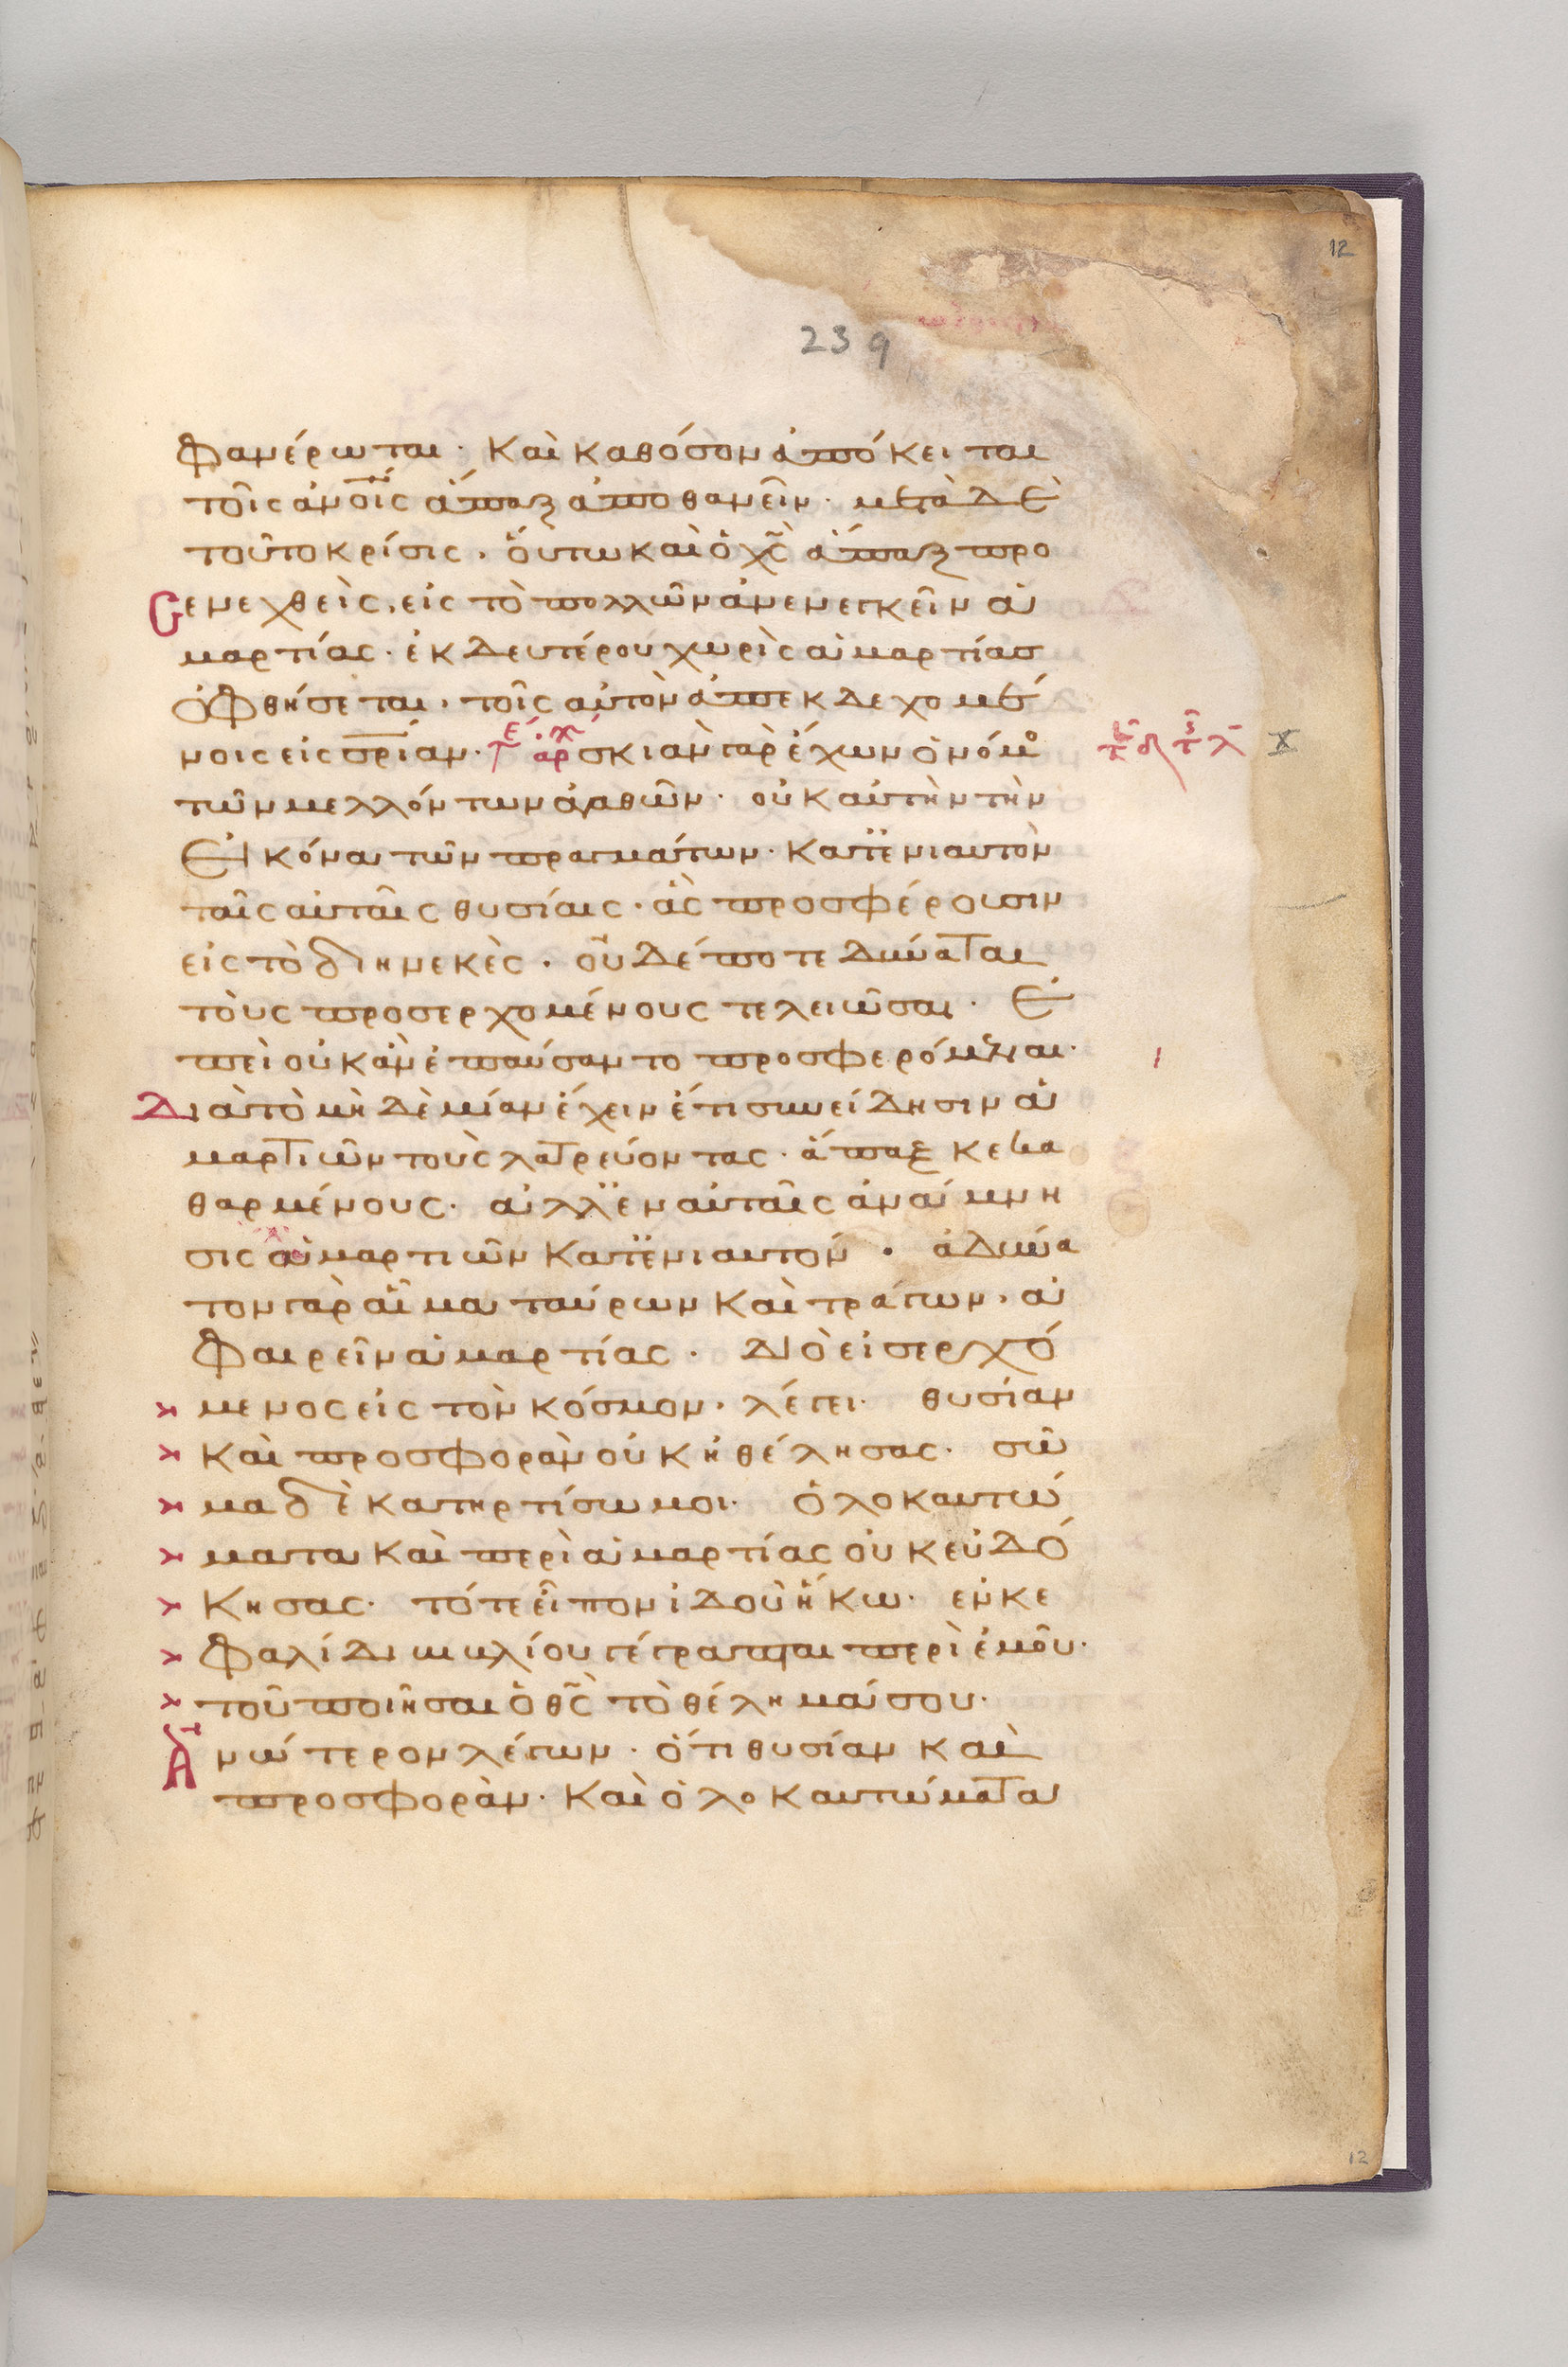 12
239
φανέρωται· καὶ καθόσον ἀπόκειται
τοῖς ἀνοις ἅπαξ ἀποθανεῖν· μετὰ δὲ
τοῦτο κρίσις. ὅυτω καὶ ὁ χς ἅπαξ προ
σενεχθεὶς, εἰς τὸ πολλῶν ἀνενεγκεῖν ἁ
μαρτίας· ἐκ δευτέρου χωρὶς ἁμαρτίασ
ὀφθήσεται, τοῖς αὐτὸν ἀπεκδεχομέ
νοις εἰς σρίαν· αρ σκιὰν γὰρ ἔχων ὁ νόμο
τῶν μελλόντων ἀγαθῶν· οὐκ αὐτὴν τὴν
εἰκόνα τῶν πραγμάτων· κατ ἐνιαυτὸν
ταῖς αὐταῖς θυσίαις· ἃς προσφέρουσιν
εἰς τὸ διηνεκὲς· οὐδέποτε δύναται
τοὺς προσερχομένους τελειῶσαι· ἐ
πεὶ οὐκ ἂν ἐπαύσαντο προσφερόμεναι·
διὰ τὸ μὴδὲμίαν ἔχειν ἔτι συνείδησιν ἁ
μαρτιῶν τοὺς λατρεύοντας· ἅπαξ κεκα
θαρμένους· ἀλλ ἐν αὐταῖς ἀνάμνη
σις ἁμαρτιῶν κατ ἐνιαυτόν· ἀδύνα
τον γὰρ αἷμα ταύρων καὶ τράγων, ἀ
φαιρεῖν ἁμαρτίας· διὸ εἰσερχό
μενος εἰς τὸν κόσμον· λέγει· θυσίαν
καὶ προσφορὰν οὐκ ἠθέλησας· σῶ
μα δὲ κατηρτίσω μοι· ὁλοκαυτώ
ματα καὶ περὶ ἁμαρτίας οὐκ εὐδό
κησας· τότε εἶπον ἰδοὺ ἥκω· ἐν κε
φαλίδι βιβλίου γέγραπται περὶ ἐμοῦ·
τοῦ ποιῆσαι ὁ θς τὸ θέλημά σου·
ἀνώτερον λέγων· ὅτι θυσίαν καὶ
προσφορὰν· καὶ ὁλοκαυτώματα
X
12